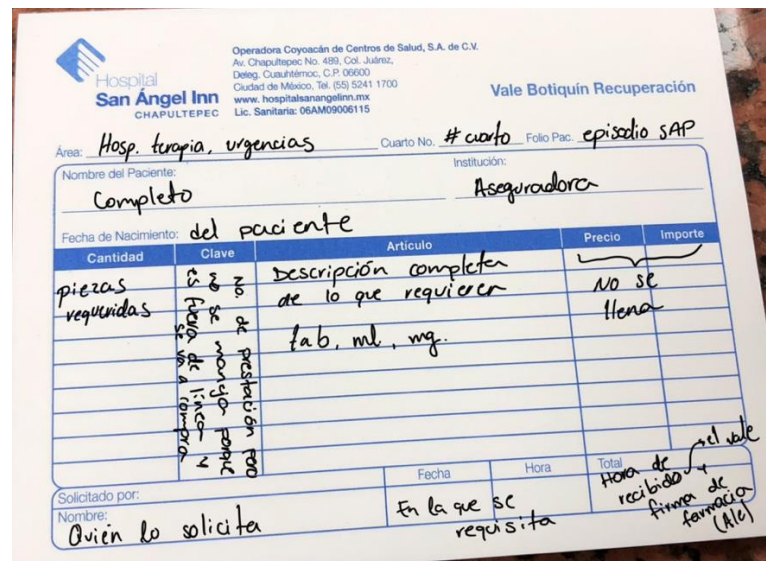 Hospital
San Ángel Inn
CHAPULTEPEC
Operadora Coyoacán de Centros de Salud, S.A. de C.V.
Av. Chapultepec No. 489, Col. Juárez,
Deleg. Cuauhtémoc, C.P. 06600
Ciudad de México, Tel. (55) 5241 1700
www. hospitalsanangelinn.mx
Lic. Sanitaria: 06AM09006115
Vale Botiquín Recuperación
Área: Hosp. terapia, urgencias Cuarto No. # cuarto Folio Pac. episodio SAP
Nombre del Paciente: Institución:
Completo Aseguradora
Fecha de Nacimiento: del paciente
Cantidad Clave Artículo Precio Importe
piezas
requeridas
No. de prestación pero
no se maneja porque
es fuera de línea y
se va a compra
Descripción completa
de lo que requieren
tab, ml, mg.
No se
llena
Solicitado por: Fecha Hora Total
Nombre:
Quién lo solicita
En la que se
requisita
Hora de
recibido el vale
+
firma de
farmacia
(Ale)